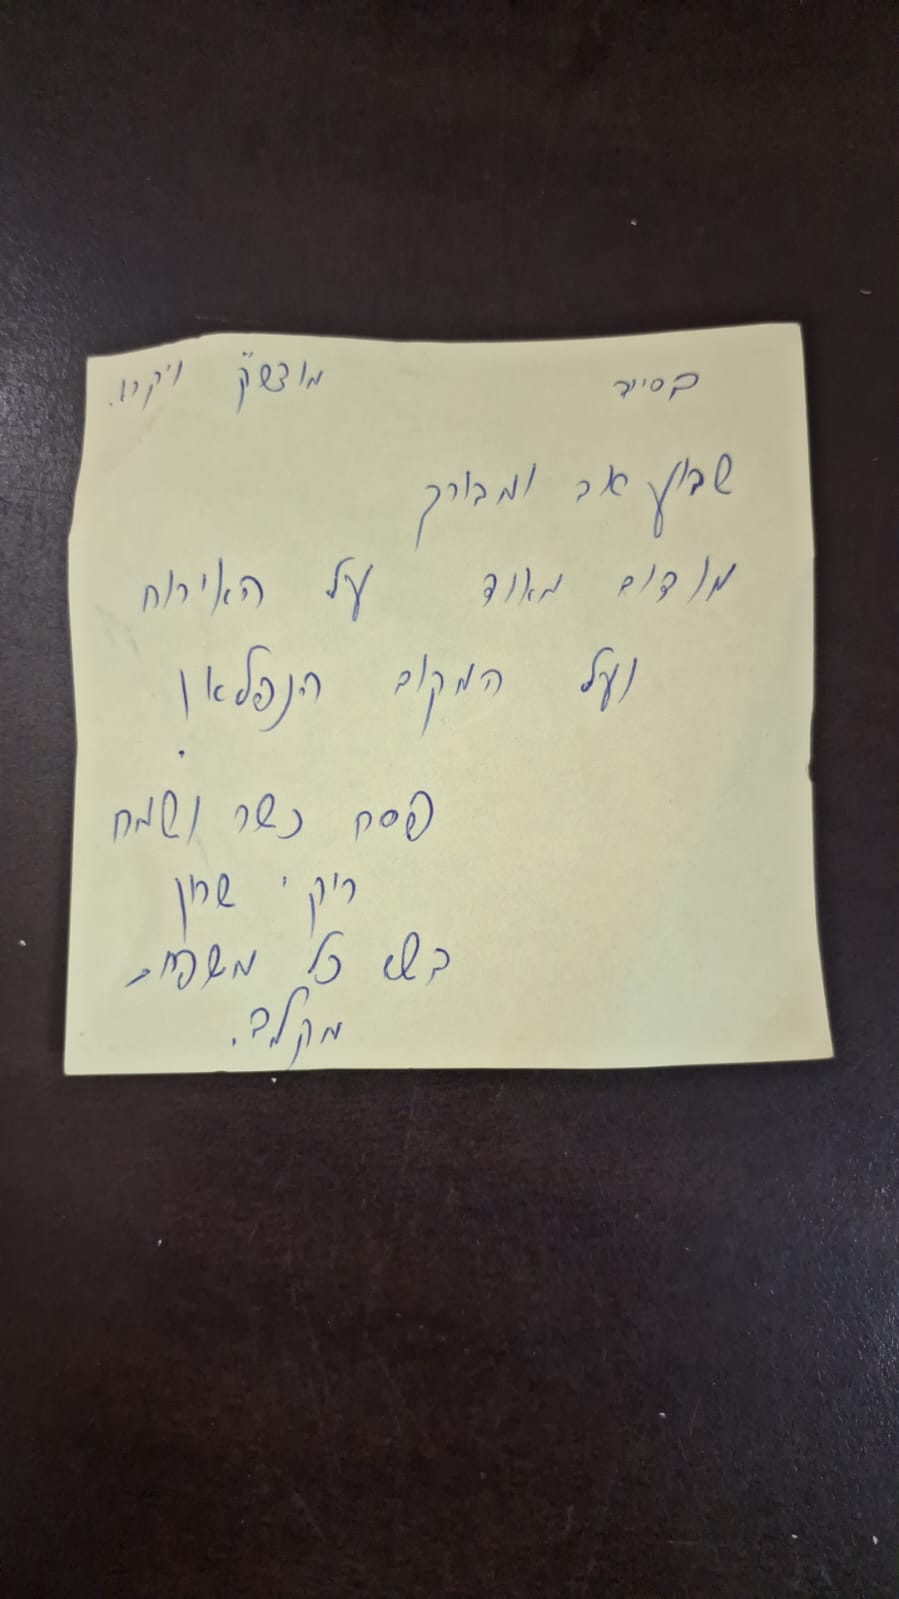 בסייד מוצש״ק ויקרא.
שבוע טוב ומבורך
מודים מאוד על האירוח
ועל המקום הנפלא
פסח כשר ושמח
ריקי שרון
בשם כל משפחת